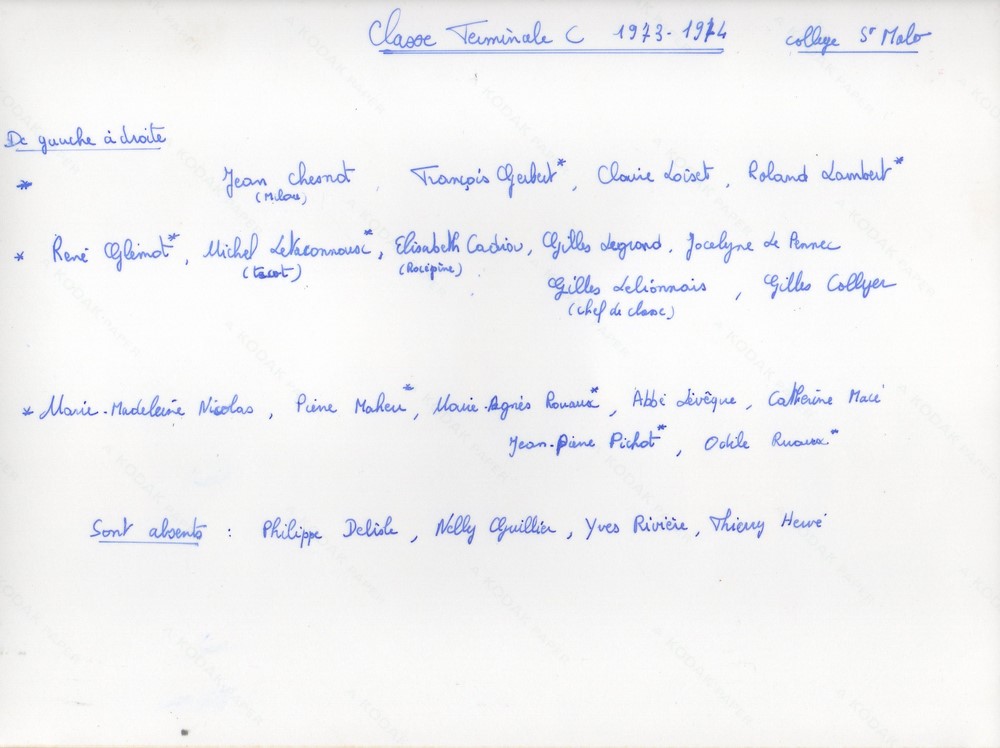 Classe Terminale C 1973-1974 college St Malo
De gauche à droite
* Jean Chesnot, François Gerbert*, Claire Loiset, Roland Lambert*
(Milou)
* René Glémot*, Michel Letaconnoux*, Elisabeth Cadiou, Gilles Legrand, Jocelyne Le Pennec
(tacot) (Rocépine)
Gilles Lelionnais, Gilles Collyer
(chef de classe)
* Marie-Madeleine Nicolas, Pierre Maheu*, Marie-Agnès Rouaux*, Abbé Lévêque, Catherine Macé
Jean-Pierre Pichot*, Odile Ruaux*
Sont absents : Philippe Delisle, Nelly Guillier, Yves Rivière, Thierry Hervé
A KODAK PAPER